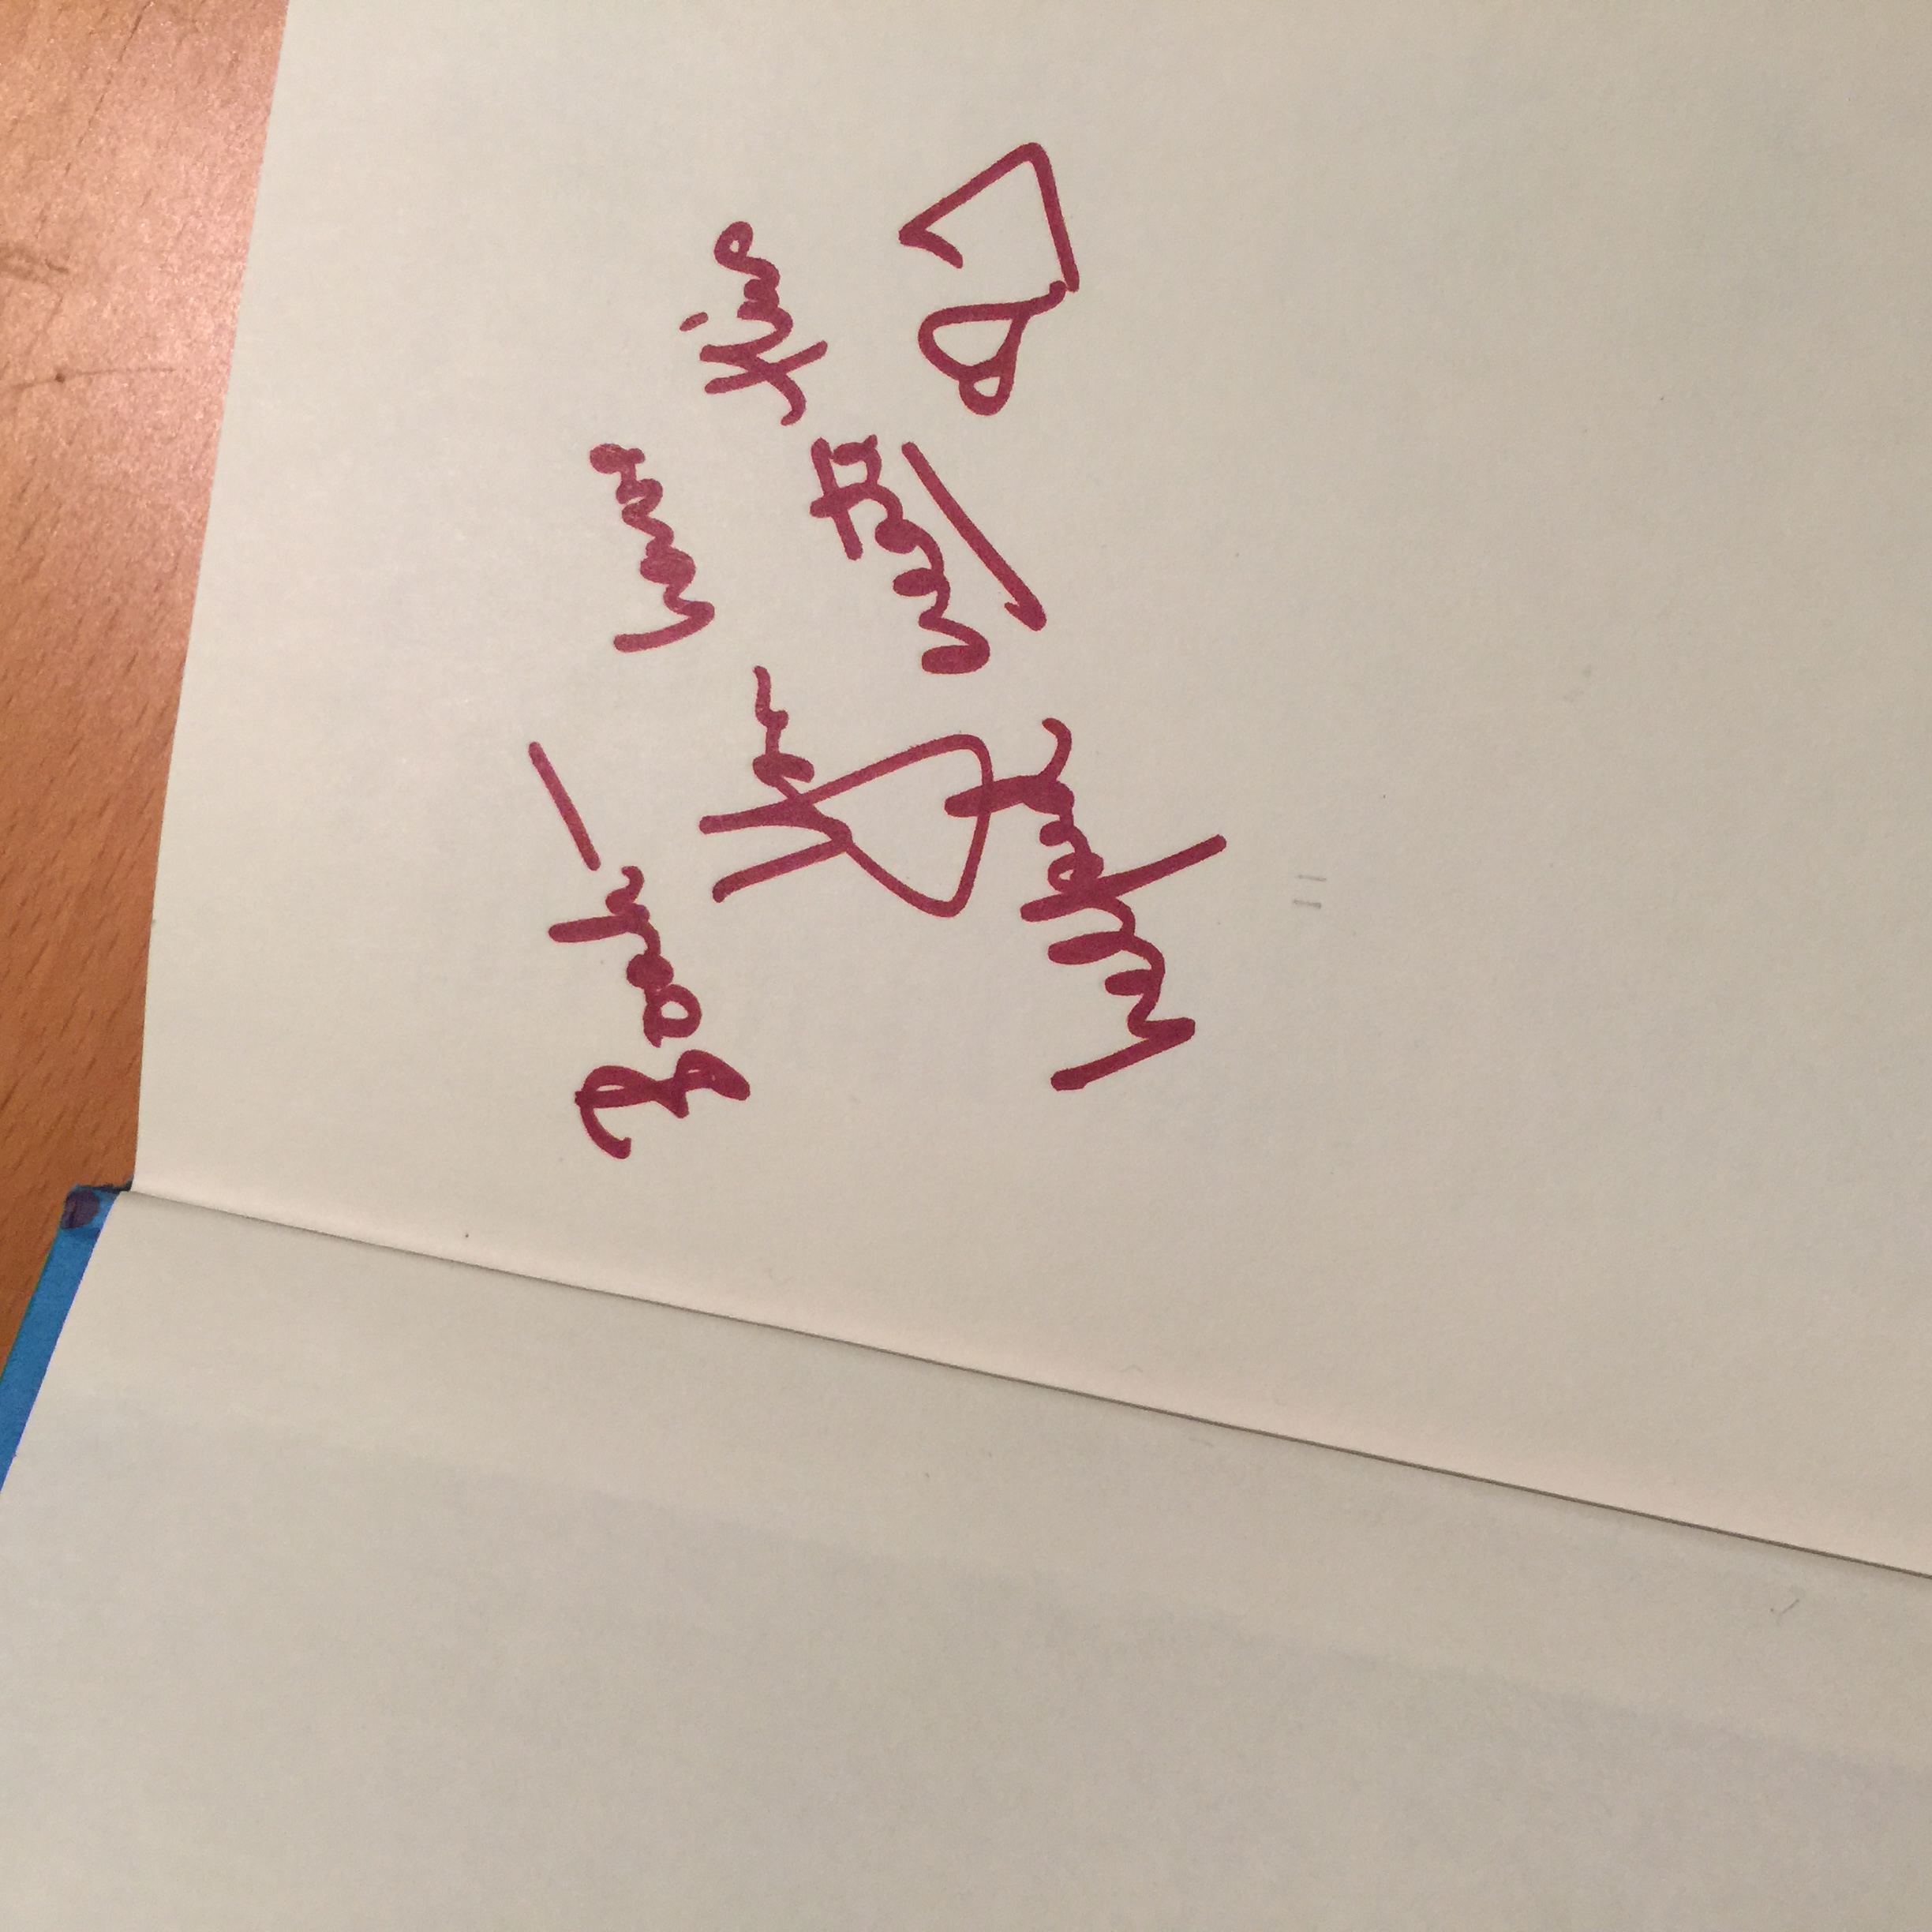 Boak—
You have
helped create this